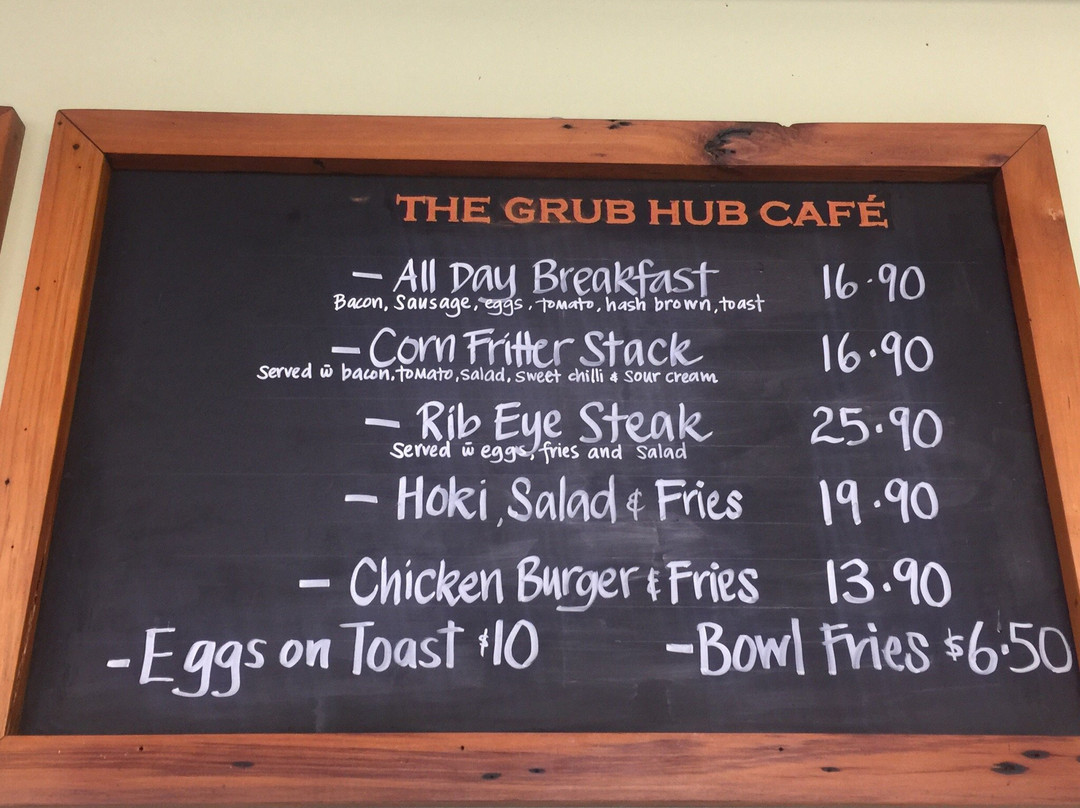 THE GRUB HUB CAFÉ
- All Day Breakfast 16.90
Bacon, Sausage, eggs, tomato, hash brown, toast
- Corn Fritter Stack 16.90
Served w̄ bacon, tomato, salad, sweet chilli & sour cream
- Rib Eye Steak 25.90
Served w̄ eggs, fries and salad
- Hoki, Salad & Fries 19.90
- Chicken Burger & Fries 13.90
- Eggs on Toast $10 - Bowl Fries $6.50